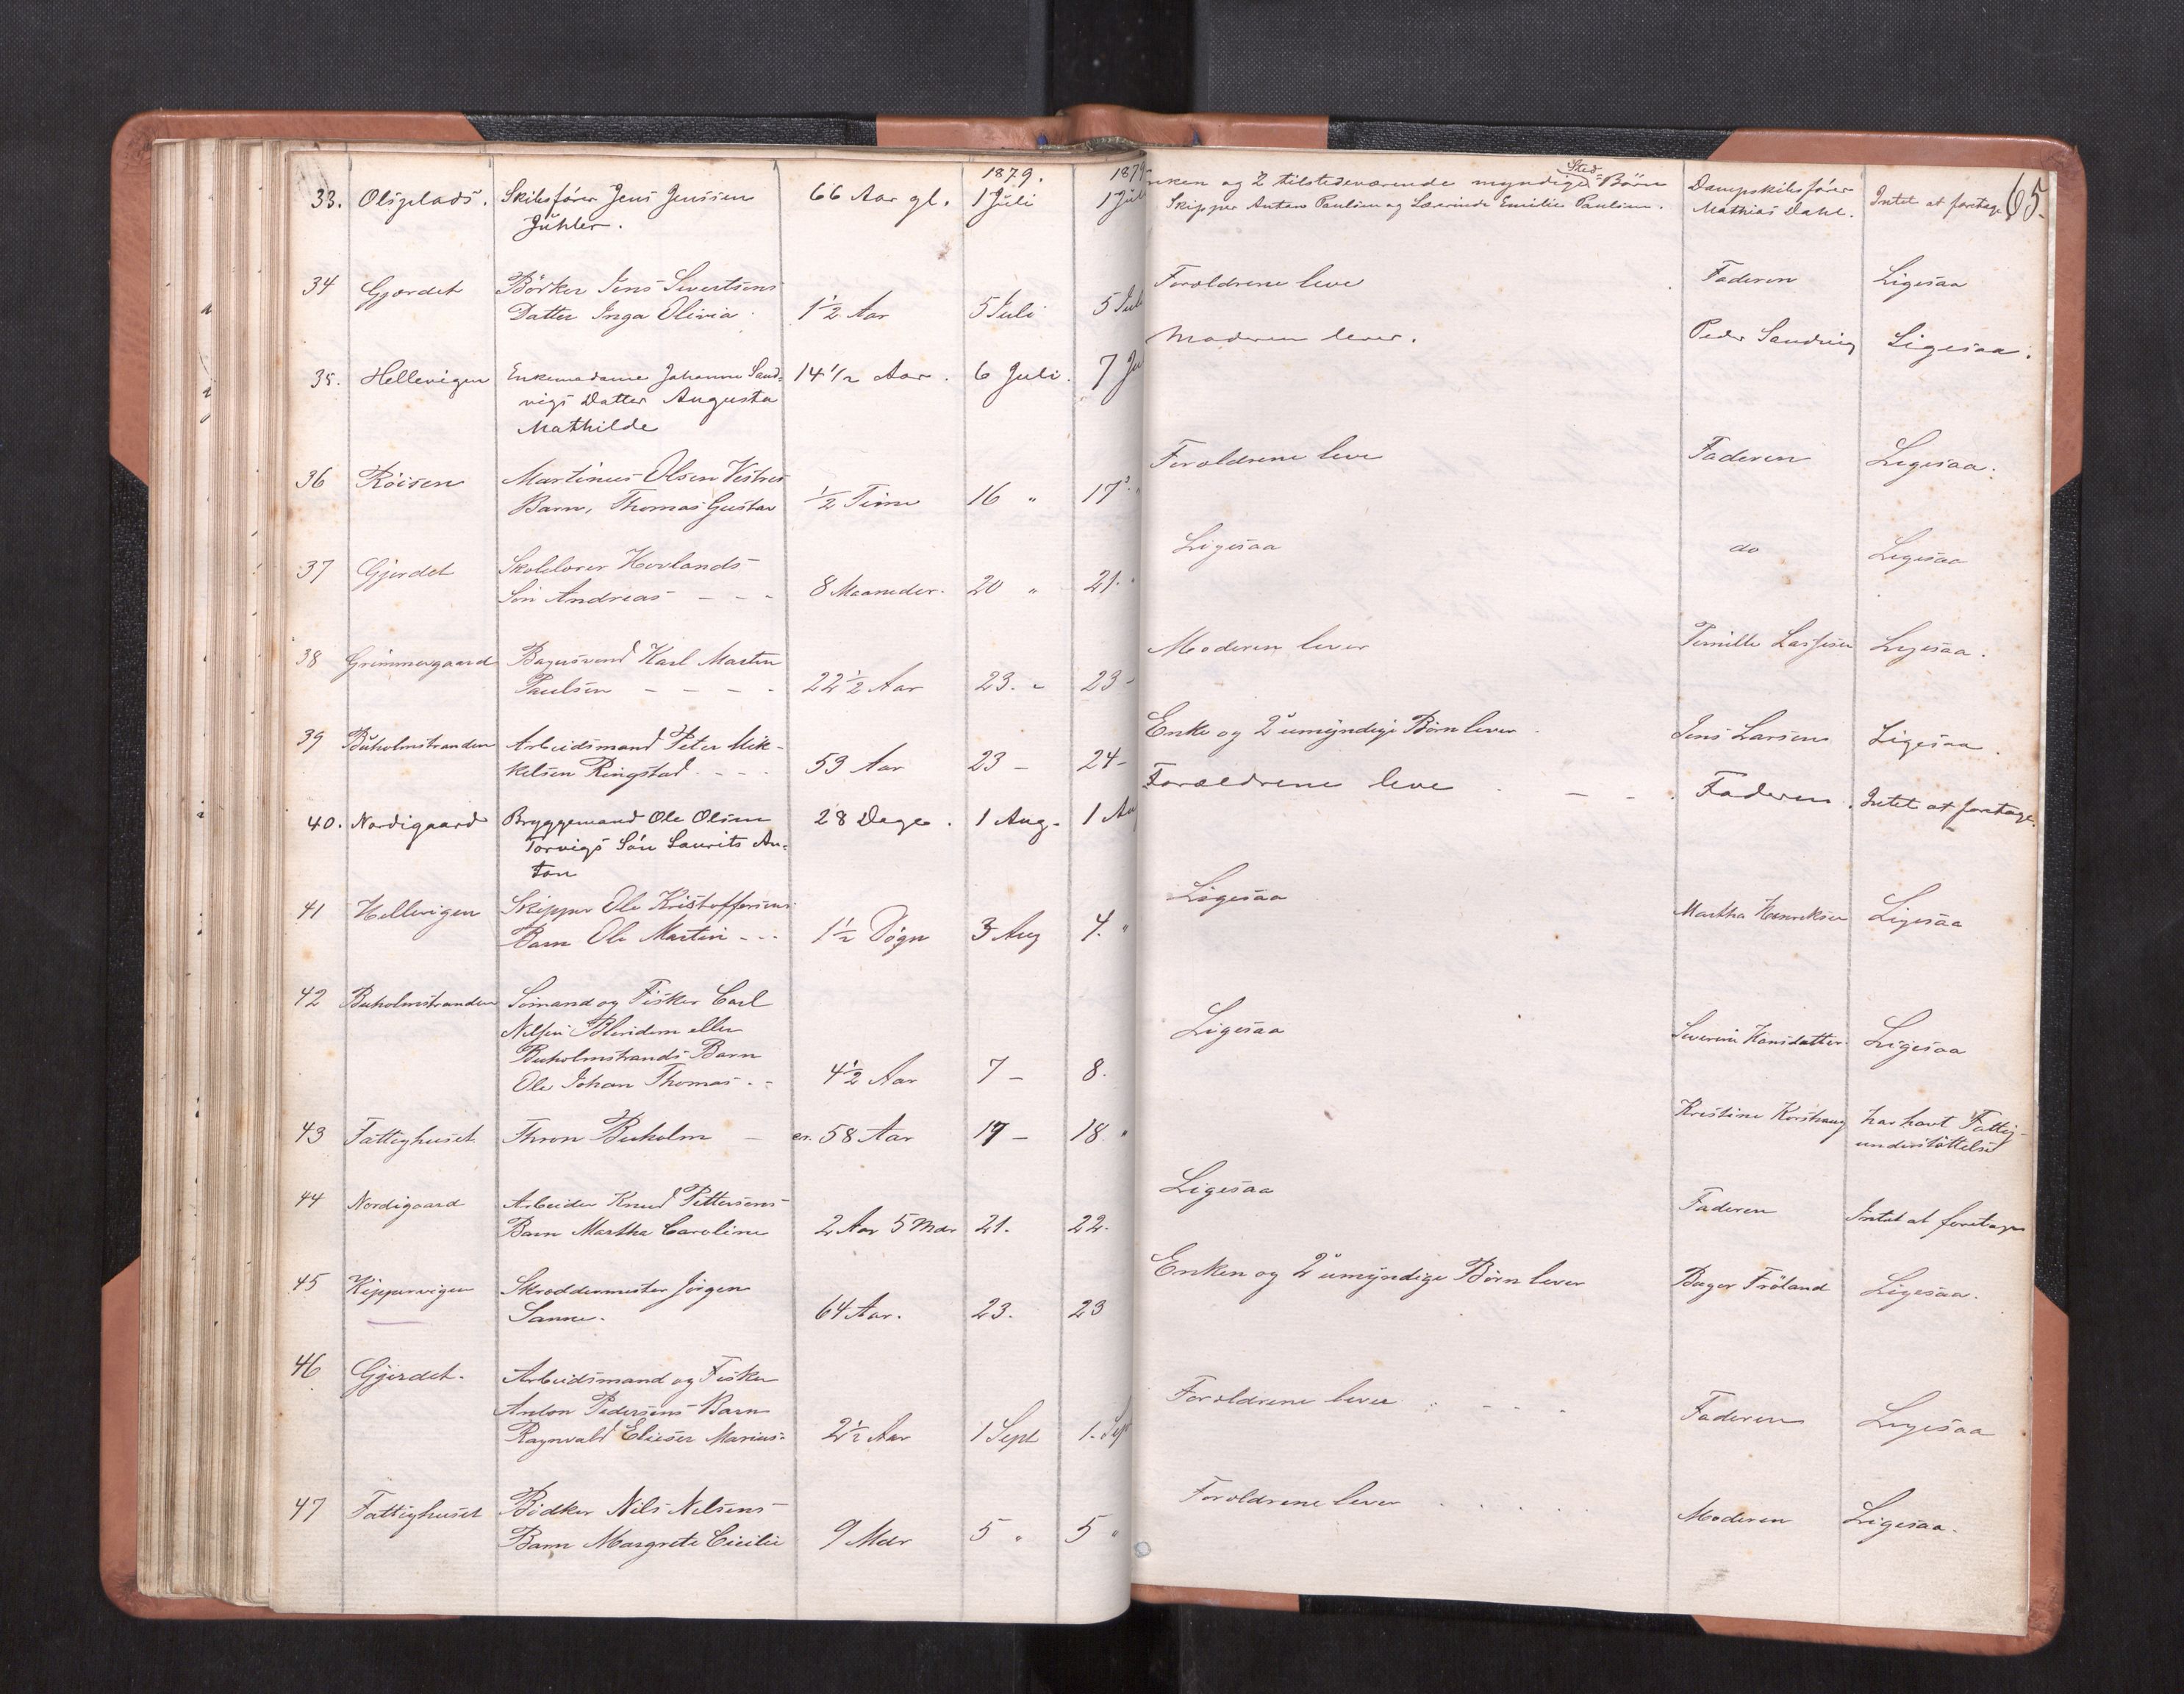 1879. 1879
33. Olsplads. Skibsfører Jens Jenssen 66 Aar gl. 1 Juli 1 Jul
Jühler.
34 Gjærdet Bödker Jens Sivertsens
Datter Inga Olivia 1½ Aar 5 Juli 5 Jul
35. Hellevigen Enkemadame Johanne Sand- 14 1/2 Aar. 6 Juli. 7 Ju
vigs Datter Augusta
Mathilde
36 Röisen Martinus Olsen Vestres
Barn, Thomas Gustav ½ Time 16 " 17 "
37 Gjerdet Skolelærer Hovlands
Sön Andreas - - - 8 Maaneder. 20 " 21. "
38 Grimmergaard Bagersvend Karl Martin
Paulsen - - - - 22½ Aar 23. " 23 -
39 Buholmstranden Arbeidsmand Peter Mik-
kelsen Ringstad - - - 53 Aar 23 - 24 -
40. Nordigaard Bryggemand Ole Olsen 28 Dage. 1 Aug. 1 Au
Torvigs Sön Laurits An-
ton
41 Hellevigen Skipper Ole Kristoffersens
Barn Ole Martin - - 1½ Dögn 3 Aug 4. "
42 Buholmstranden Sömand og Fisker Carl
Nelsen eller
Buholmstrands Barn
Ole Johan Thomas - - 4½ Aar 7 - 8.
43 Fattighuset Thron Buholm - cr. 58 Aar 17 - 18. "
44 Nordigaard Arbeider Knud Pettersens
Barn Martha Caroline 2 Aar 5 Mdr 21. 22.
45 Kippervigen Skræddermester Jörgen
Sanne. 64 Aar. 23. 23
46 Gjerdet. Arbeidsmand og Fisker
Anton Pedersens Barn
Ragnvald Elieser Marius 2½ Aar 1 Sept 1. Sep
47 Fattighuset Bödker Nils Nelsens
Barn Margrete Cicilie 9 Mdr 5 " 5 "
Sted
nken og 2 tilstedeværende myndige Börn Dampskibsfører Intet at foretage 65.
Skipper Anton Paulsen og Lærerinde Emilie Paulsen. Mathias Dahl.
Forældrene leve Faderen Ligesaa
Moderen lever. Peder Sandvig Ligesaa.
Forældrene leve Faderen Ligesaa.
Ligesaa do Ligesaa
Moderen lever Pernille Lassesen Ligesaa.
Enke og 2 umyndige Börn lever Jens Larsen Ligesaa.
Forældrene leve - - . Faderen. Intet at foretage.
Ligesaa Martha Henriksen Ligesaa
Ligesaa Severine Hansdatter Ligesaa
Kristine Korshaug har havt Fattig-
understöttelse
Ligesaa Faderen Intet at foretage
Enken og 2 umyndige Börn lever Bager Fröland Ligesaa.
Forældrene lever - - - Faderen Ligesaa
Forældrene lever . . . . Moderen Ligesaa.